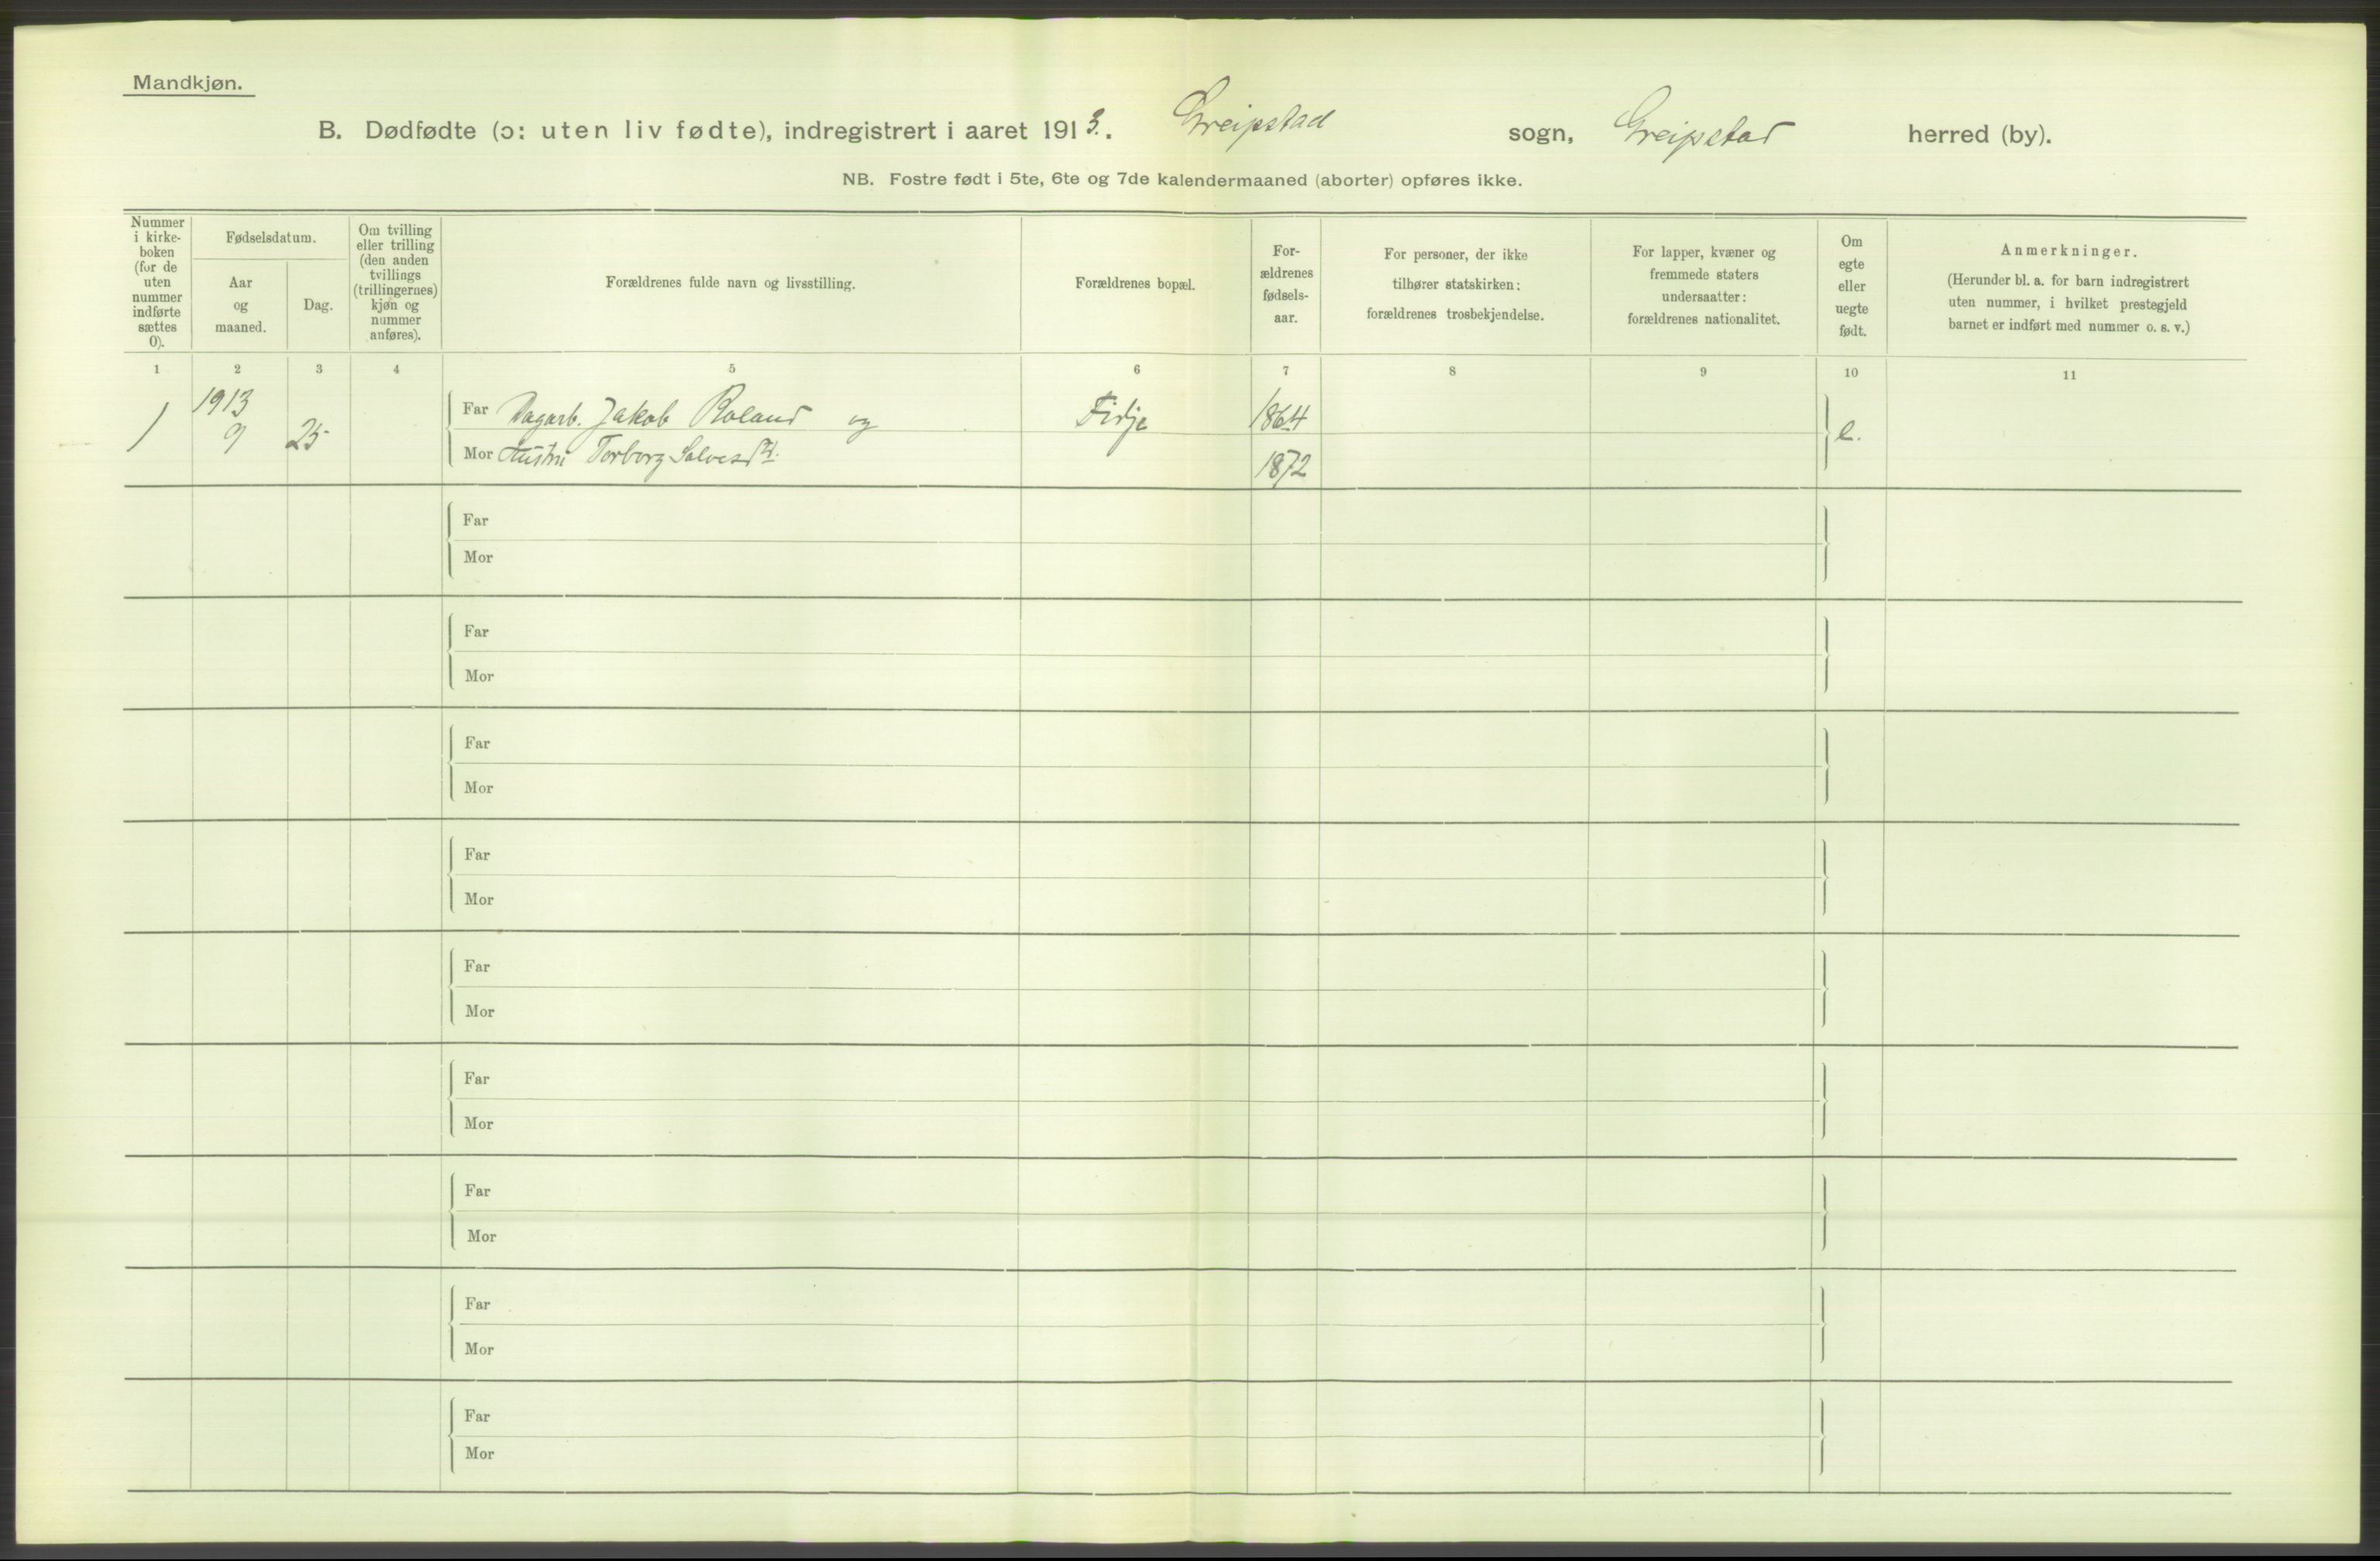 Mandkjøn.
B. Dødfødte (ɔ: uten liv fødte), indregistrert i aaret 1913. Greipstad sogn, Greipstad herred (by).
NB. Fostre født i 5te, 6te og 7de kalendermaaned (aborter) opføres ikke.
Nummer
i kirke-
boken
(for de
uten
nummer
indførte
sættes
0).
Fødselsdatum.
Aar
og
maaned.
Dag.
Om tvilling
eller trilling
(den anden
tvillings
(trillingernes)
kjøn og
nummer
anføres).
Forældrenes fulde navn og livsstilling.
Forældrenes bopæl.
For-
ældrenes
fødsels-
aar.
For personer, der ikke
tilhører statskirken:
forældrenes trosbekjendelse.
For lapper, kvæner og
fremmede staters
undersaatter:
forældrenes nationalitet.
Om
egte
eller
uegte
født.
Anmerkninger.
(Herunder bl. a. for barn indregistrert
uten nummer, i hvilket prestegjeld
barnet er indført med nummer o. s. v.)
1 2 3 4 5 6 7 8 9 10 11
1913
1 9 25
Far Dagarb. Jakob Roland og Fidje 1864
e.
Mor Hustru Torborg Salvesdtr. 1872
Far
Mor
Far
Mor
Far
Mor
Far
Mor
Far
Mor
Far
Mor
Far
Mor
Far
Mor
Far
Mor